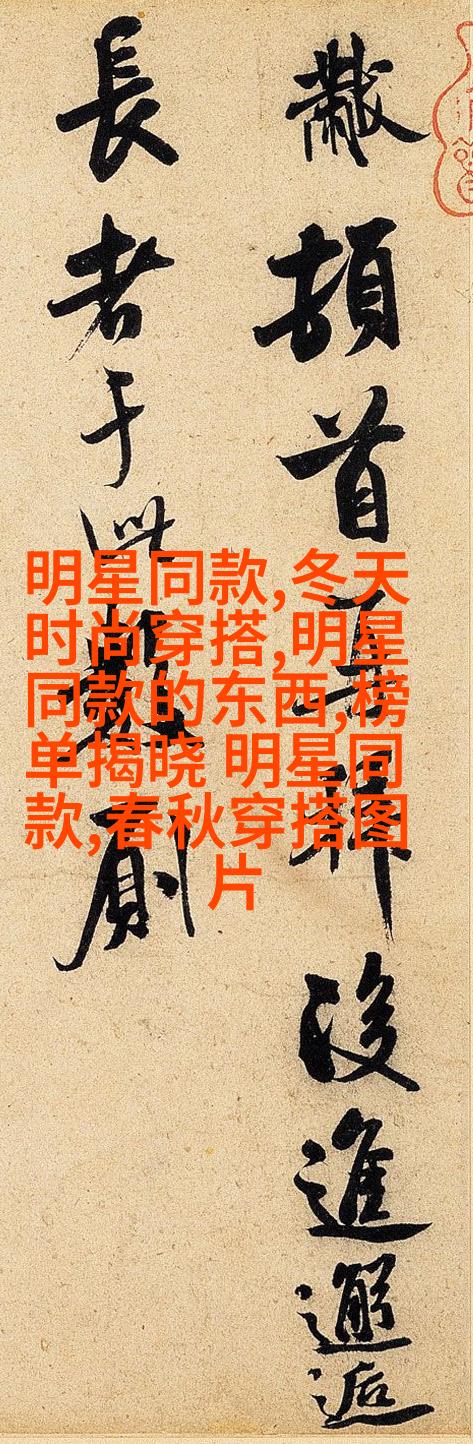 黻頓首後進邂逅
長者于此
明星同款,冬天
时尚穿搭,明星
同款的东西,榜
单揭晓 明星同
款,春秋穿搭图
片